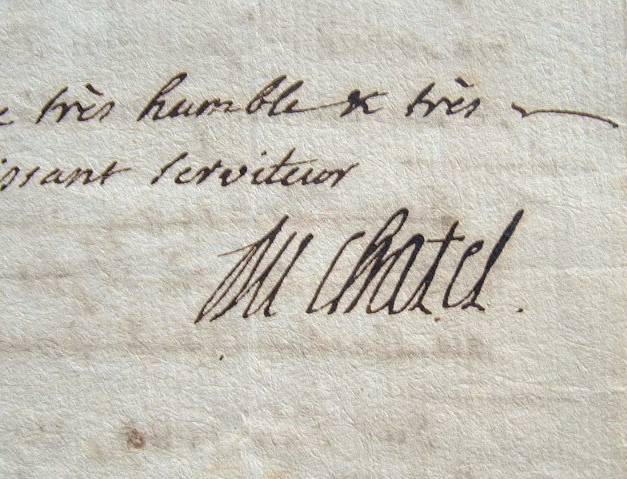 très humble & très
issant serviteur
Du chatel.